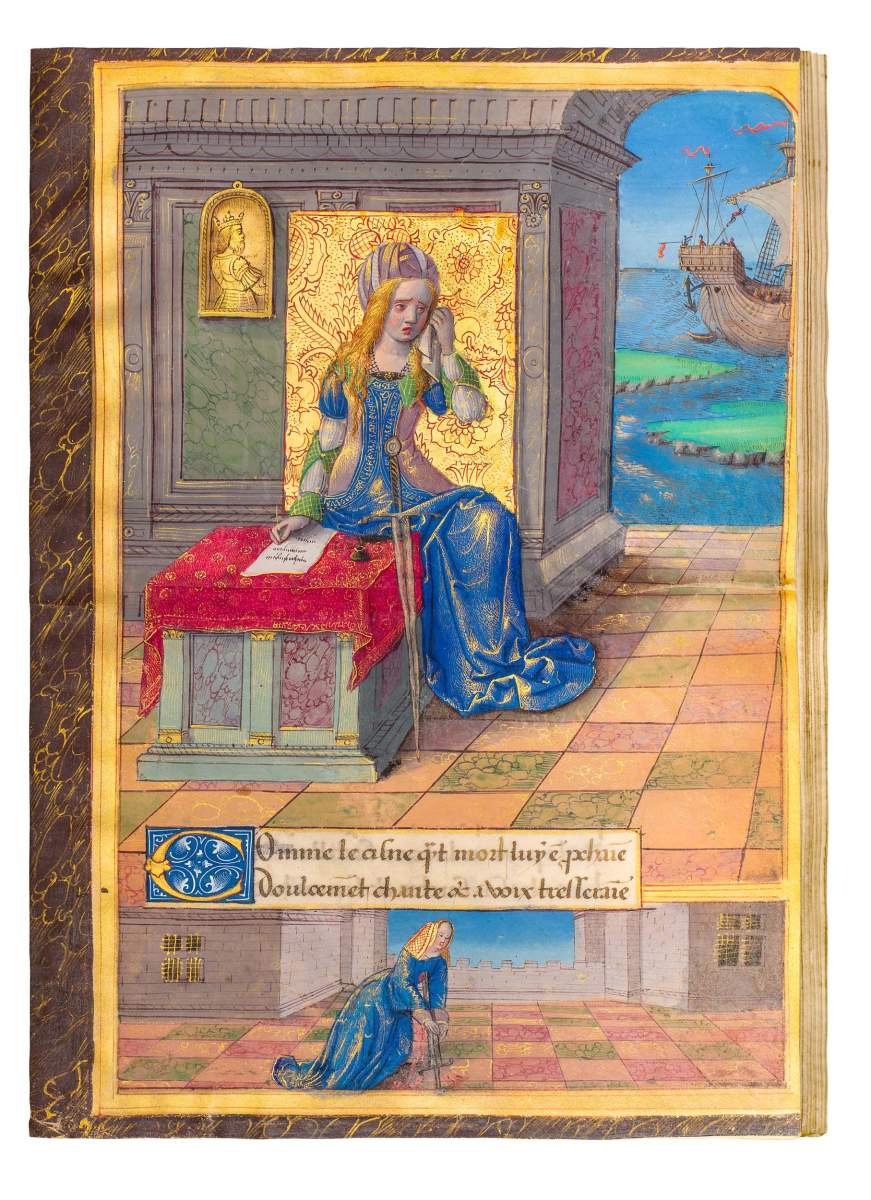 Comme le cisne q̃t mort luy ẽ ꝓchaĩe
Doulcemẽt chante & a voix tresseraiẽ